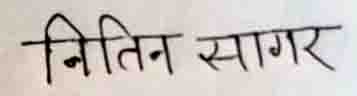 नितिन सागर